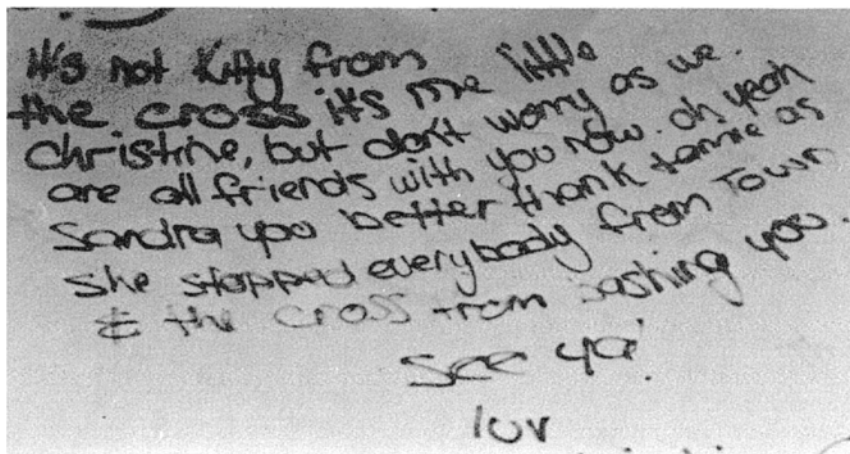 It's not Kitty from
the cross it's me little
christine, but don't worry as we.
are all friends with you now. oh yeah
Sandra you better thank tamie as
she stopped everybody from Town
& the cross from bashing you.
See ya!
luv